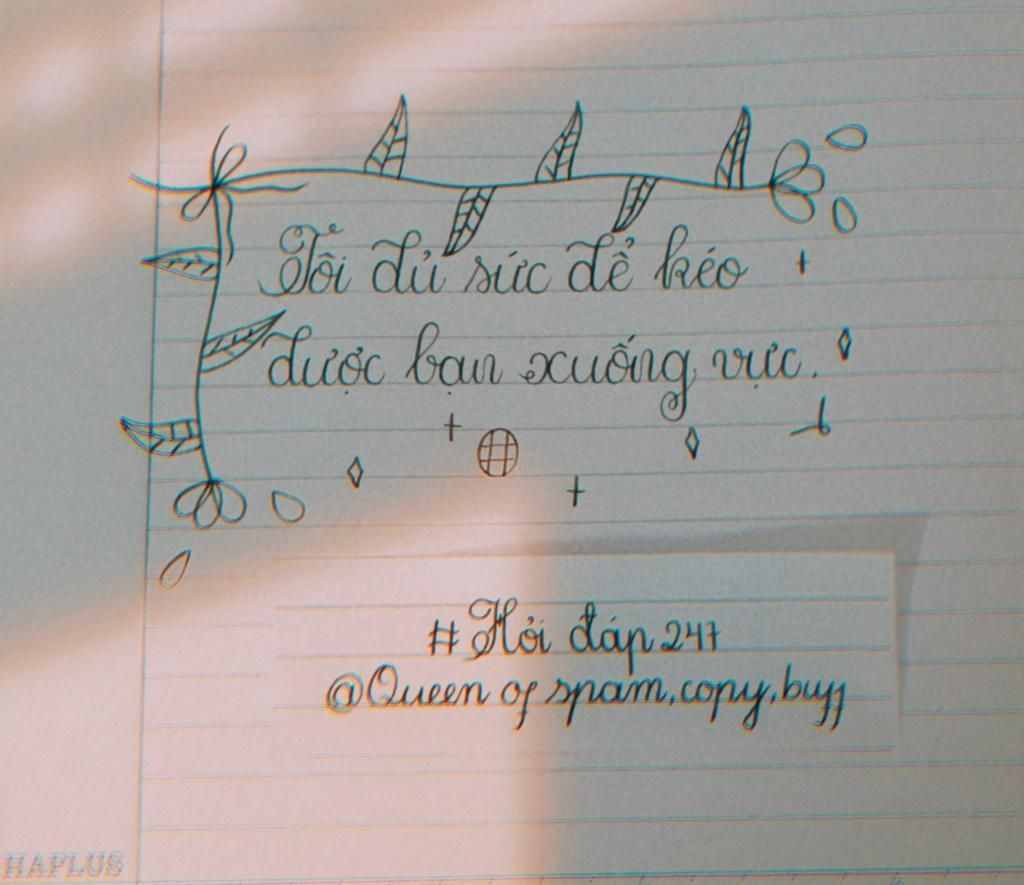 Tôi đủ sức để kéo
được bạn xuống vực.
#Hỏi đáp 247
@Queen of spam,copy,buff
HAPLUS